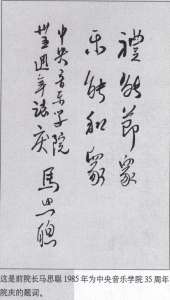 禮能節眾
乐能和眾
中央音乐学院
卅五週年誌庆
馬思聰
这是前院长马思聪 1985 年为中央音乐学院 35 周年
院庆的题词。